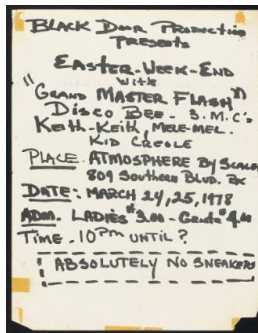 BLACK DOOR PRODUCTION
PRESENTS
EASTER-WEEK-END
WITH
"GRAND MASTER FLASH"
DISCO BEE - 3. M.C's
KEITH-KEITH, MELE-MEL.
KID CREOLE
PLACE. ATMOSPHERE BY SCALA
809 SOUTHERN BLVD. BX
DATE: MARCH 24, 25, 1978
ADM. LADIES $3.00 - GENTS $4.00
TIME. 10PM UNTIL?
ABSOLUTELY NO SNEAKERS